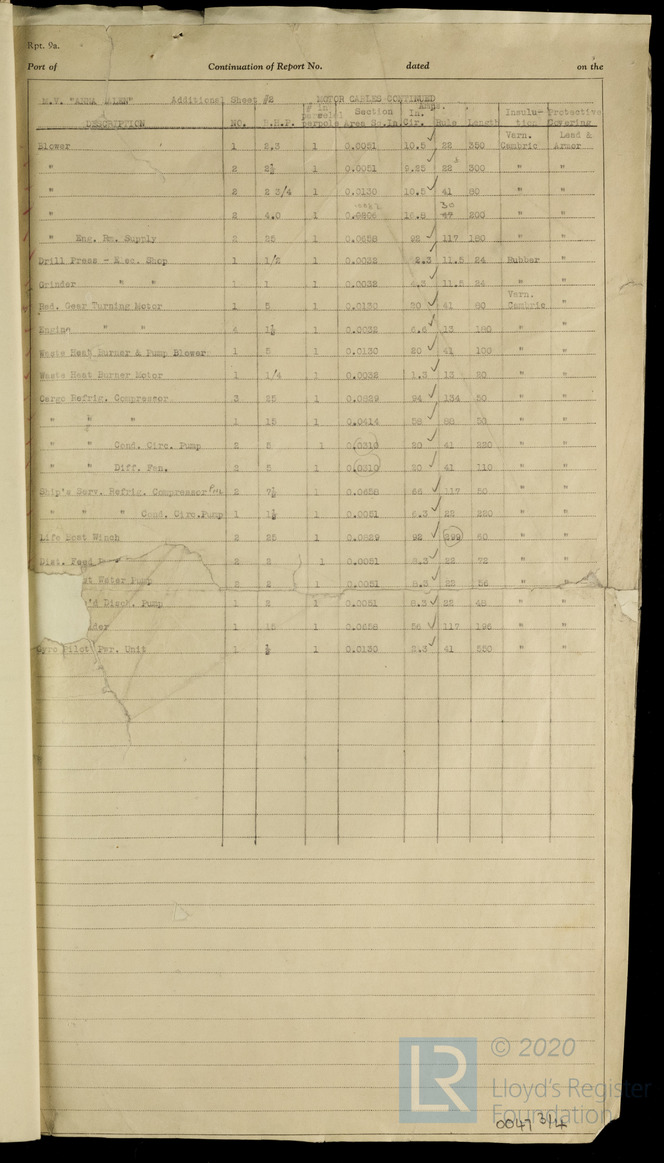 Rpt. 9a.
Port of Continuation of Report No. dated on the
M.V. "ANNA Additional Sheet #2 MOTOR CABLES CONTINUED
DESCRIPTION NO. B.H.P. # in parallel per pole Section Area Sq.In. Amps. In. Cir. Rule Length Insulation Protective Covering
Blower 1 2.3 1 0.0051 10.5 22 350 Varn. Cambric Lead & Armor
" 2 2½ 1 0.0051 9.25 22 300 " "
" 2 2 3/4 1 0.0130 10.5 41 80 " "
" 2 4.0 1 16.8 30 200 " "
" Eng. Rm. Supply 2 25 1 0.0658 92 117 180 " "
Drill Press - Elec. Shop 1 1/2 1 0.0032 2.3 11.5 24 Rubber "
Grinder " " 1 1 1 0.0032 4.3 11.5 24 " "
Red. Gear Turning Motor 1 5 1 0.0130 20 41 80 Varn. Cambric "
Engine " " 4 1½ 1 0.0032 6.6 13 180 " "
Waste Heat Burner & Pump Blower 1 5 1 0.0130 20 41 100 " "
Waste Heat Burner Motor 1 1/4 1 0.0032 1.3 13 20 " "
Cargo Refrig. Compressor 3 25 1 0.0829 94 134 50 " "
" " " 1 15 1 0.0414 58 88 50 " "
" " Cond. Circ. Pump 2 5 1 0.0310 20 41 220 " "
" " Diff. Fan. 2 5 1 0.0310 20 41 110 " "
Ship's Serv. Refrig. Compressor 2 7½ 1 0.0658 66 117 50 " "
" " " Cond. Circ.Pump 1 1½ 1 0.0051 6.3 22 220 " "
Life Boat Winch 2 25 1 0.0829 92 299 60 " "
Dist. Feed P 2 2 1 0.0051 8.3 22 72 " "
t Water Pump 2 2 1 0.0051 8.3 22 56 " "
'd Disch. Pump 1 2 1 0.0051 8.3 22 48 " "
der 1 15 1 0.0658 56 117 196 " "
Gyro Pilot Pwr. Unit 1 ½ 1 0.0130 2.3 41 550 " "
© 2020
LR
Lloyd's Register
Foundation
0047 3/4